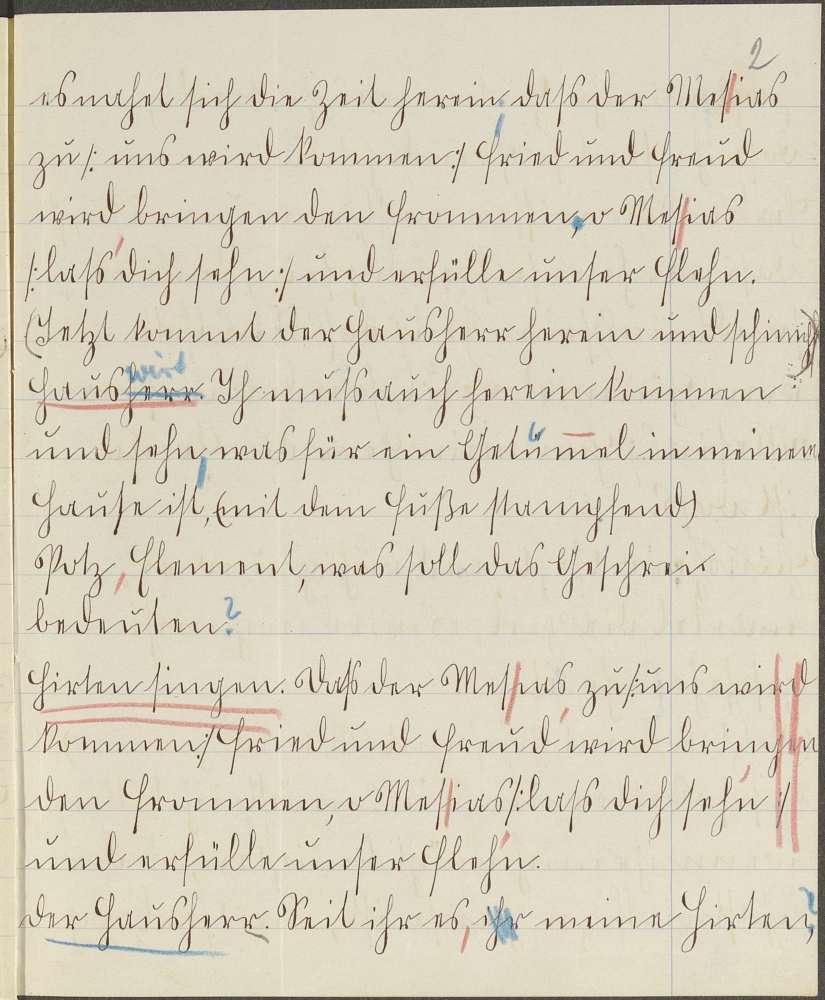 2
es nahet sich die Zeit herein, dass der Mesias
zu /: uns wird kommen :/ fried und freud
wird bringen den frommen, o Mesias
/: lass dich sehn :/ und erfülle unser flehn.
(Jetzt kommt der Hausherr herein und schimpft)
wird
Hausherr. Ih muss auch herein kommen
und sehn, was für ein Getümmel in meinem
Hause ist, (mit dem Fuße stampfend)
Potz, Element, was soll das Geschrei
bedeuten?
Hirten singen. Dass der Mesias, zu /: uns wird
kommen :/ fried und freud wird bringen
den frommen, o Mesias /: lass dich sehn :/
und erfülle unser flehn.
Der Hausherr. Seit ihr es, ihr meine Hirten,?